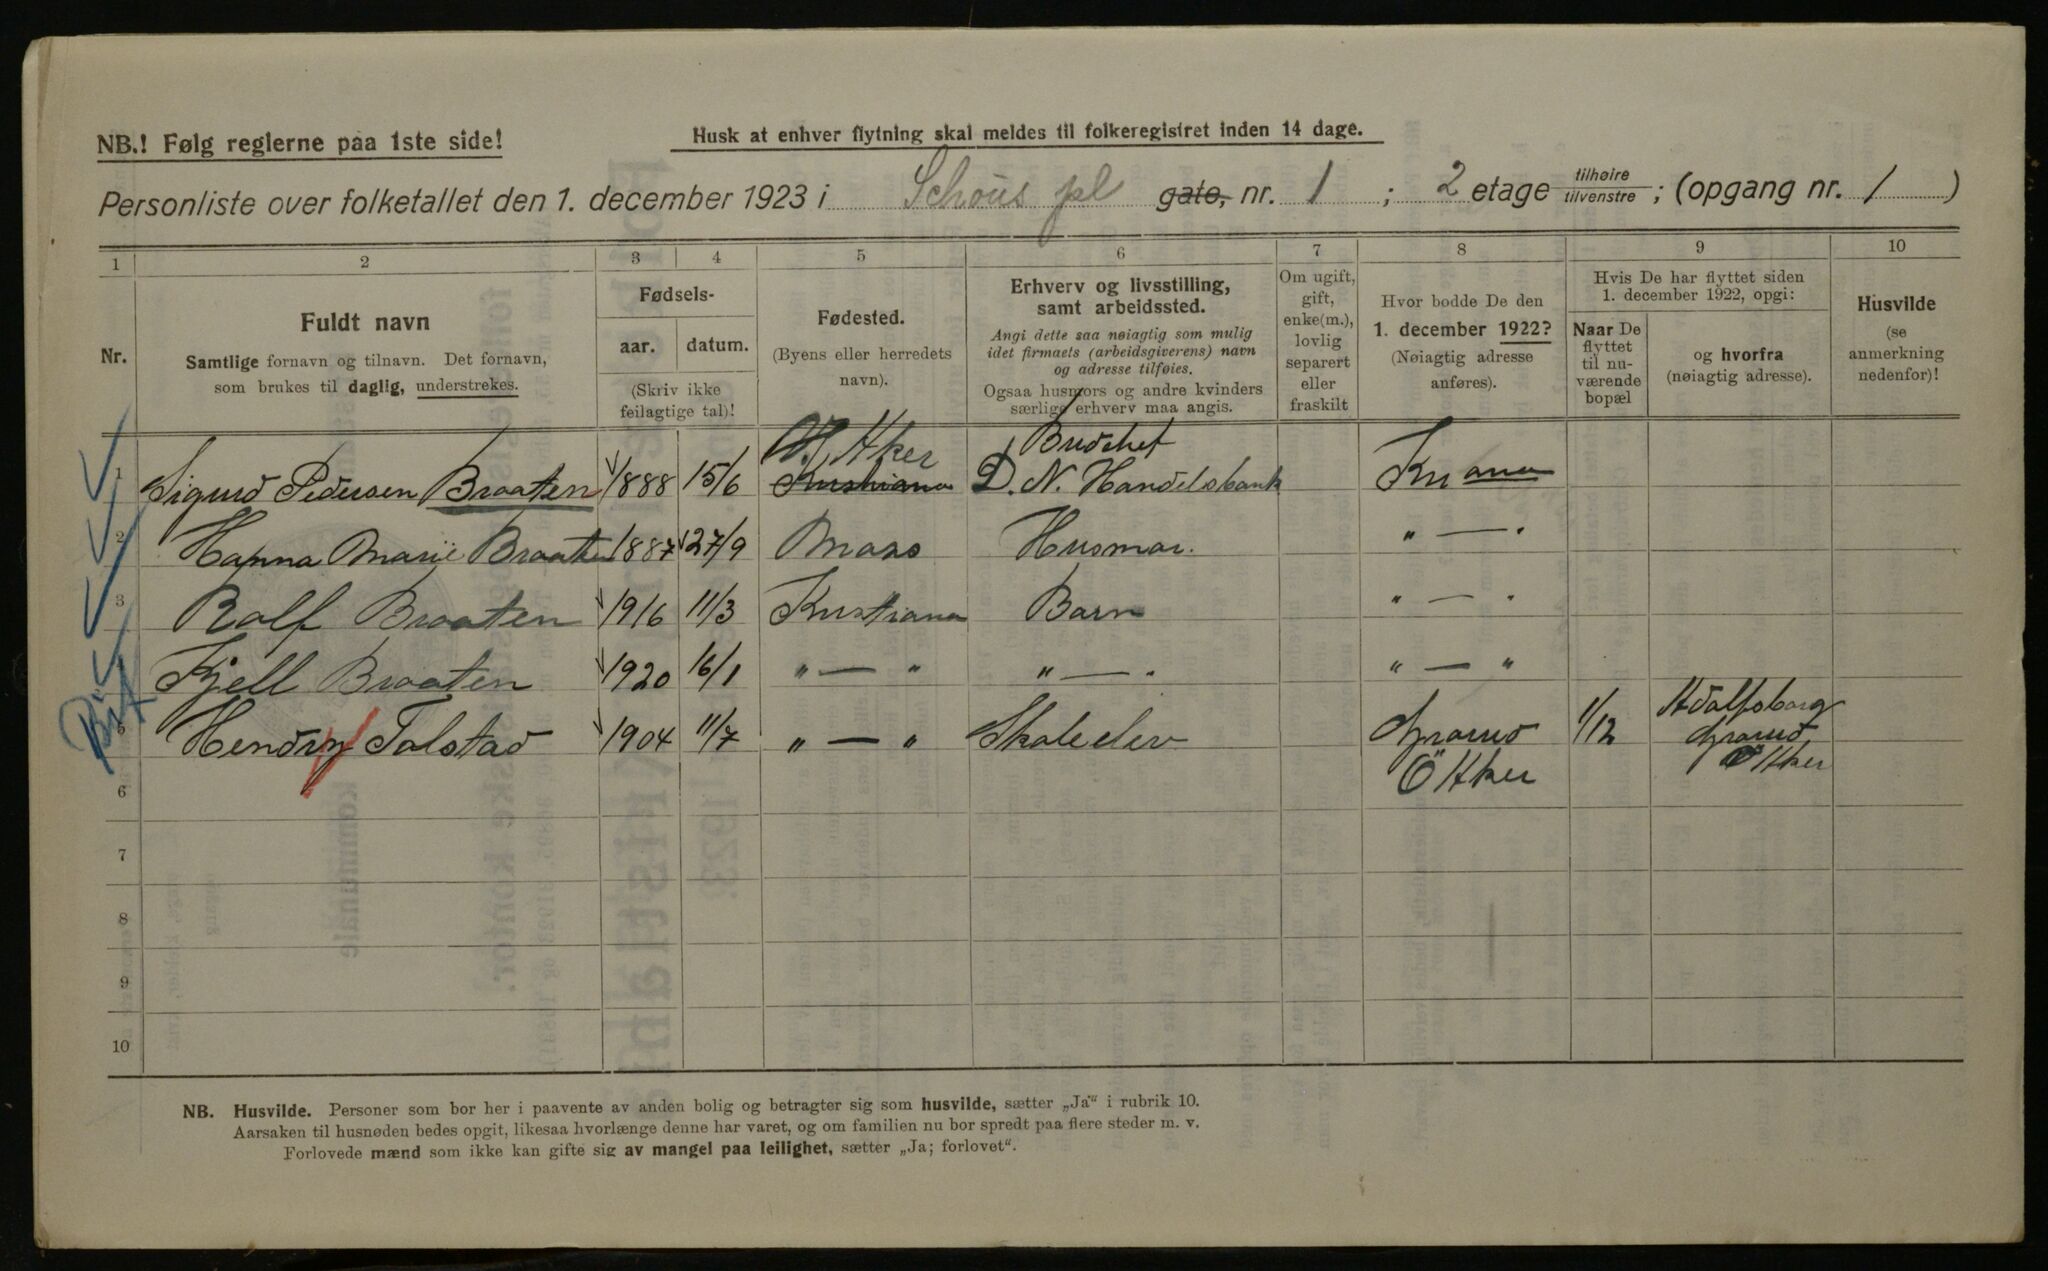 NB.! Følg reglerne paa 1ste side!
Husk at enhver flytning skal meldes til folkeregistret inden 14 dage.
Personliste over folketallet den 1. december 1923 i Schous pl gate, nr. 1 ; 2 etage tilhøire/tilvenstre ; (opgang nr. 1 )
1 2 3 4 5 6 7 8 9 10
Nr.
Fuldt navn
Samtlige fornavn og tilnavn. Det fornavn,
som brukes til daglig, understrekes.
Fødsels-
aar. datum.
(Skriv ikke
feilagtige tal)!
Fødested.
(Byens eller herredets
navn).
Erhverv og livsstilling,
samt arbeidssted.
Angi dette saa nøiagtig som mulig
idet firmaets (arbeidsgiverens) navn
og adresse tilføies.
Ogsaa husmors og andre kvinders
særlige erhverv maa angis.
Om ugift,
gift,
enke(m.),
lovlig
separert
eller
fraskilt
Hvor bodde De den
1. december 1922?
(Nøiagtig adresse
anføres).
Hvis De har flyttet siden
1. december 1922, opgi:
Naar De
flyttet
til nu-
værende
bopæl
og hvorfra
(nøiagtig adresse).
Husvilde
(se
anmerkning
nedenfor)!
Aker Budchef
1 Sigurd Pedersen Braaten 1888 15/6 Kristiania D. N. Handelsbank Kr ania
2 Hanna Marie Braaten 1887 27/9 Moss Husmor. " — "
3 Rolf Braaten 1916 11/3 Kristiania Barn " — "
4 Kjell Braaten 1920 16/1 " — " " — " " — "
5 Hendry Tolstad 1904 11/7 " — " Skoleelev Grorud 1/12 Adolfsborg
Ö Aker Grorud
Ö Aker
6
7
8
9
10
NB. Husvilde. Personer som bor her i paavente av anden bolig og betragter sig som husvilde, sætter „Ja“ i rubrik 10.
Aarsaken til husnøden bedes opgit, likesaa hvorlænge denne har varet, og om familien nu bor spredt paa flere steder m. v.
Forlovede mænd som ikke kan gifte sig av mangel paa leilighet, sætter „Ja; forlovet“.